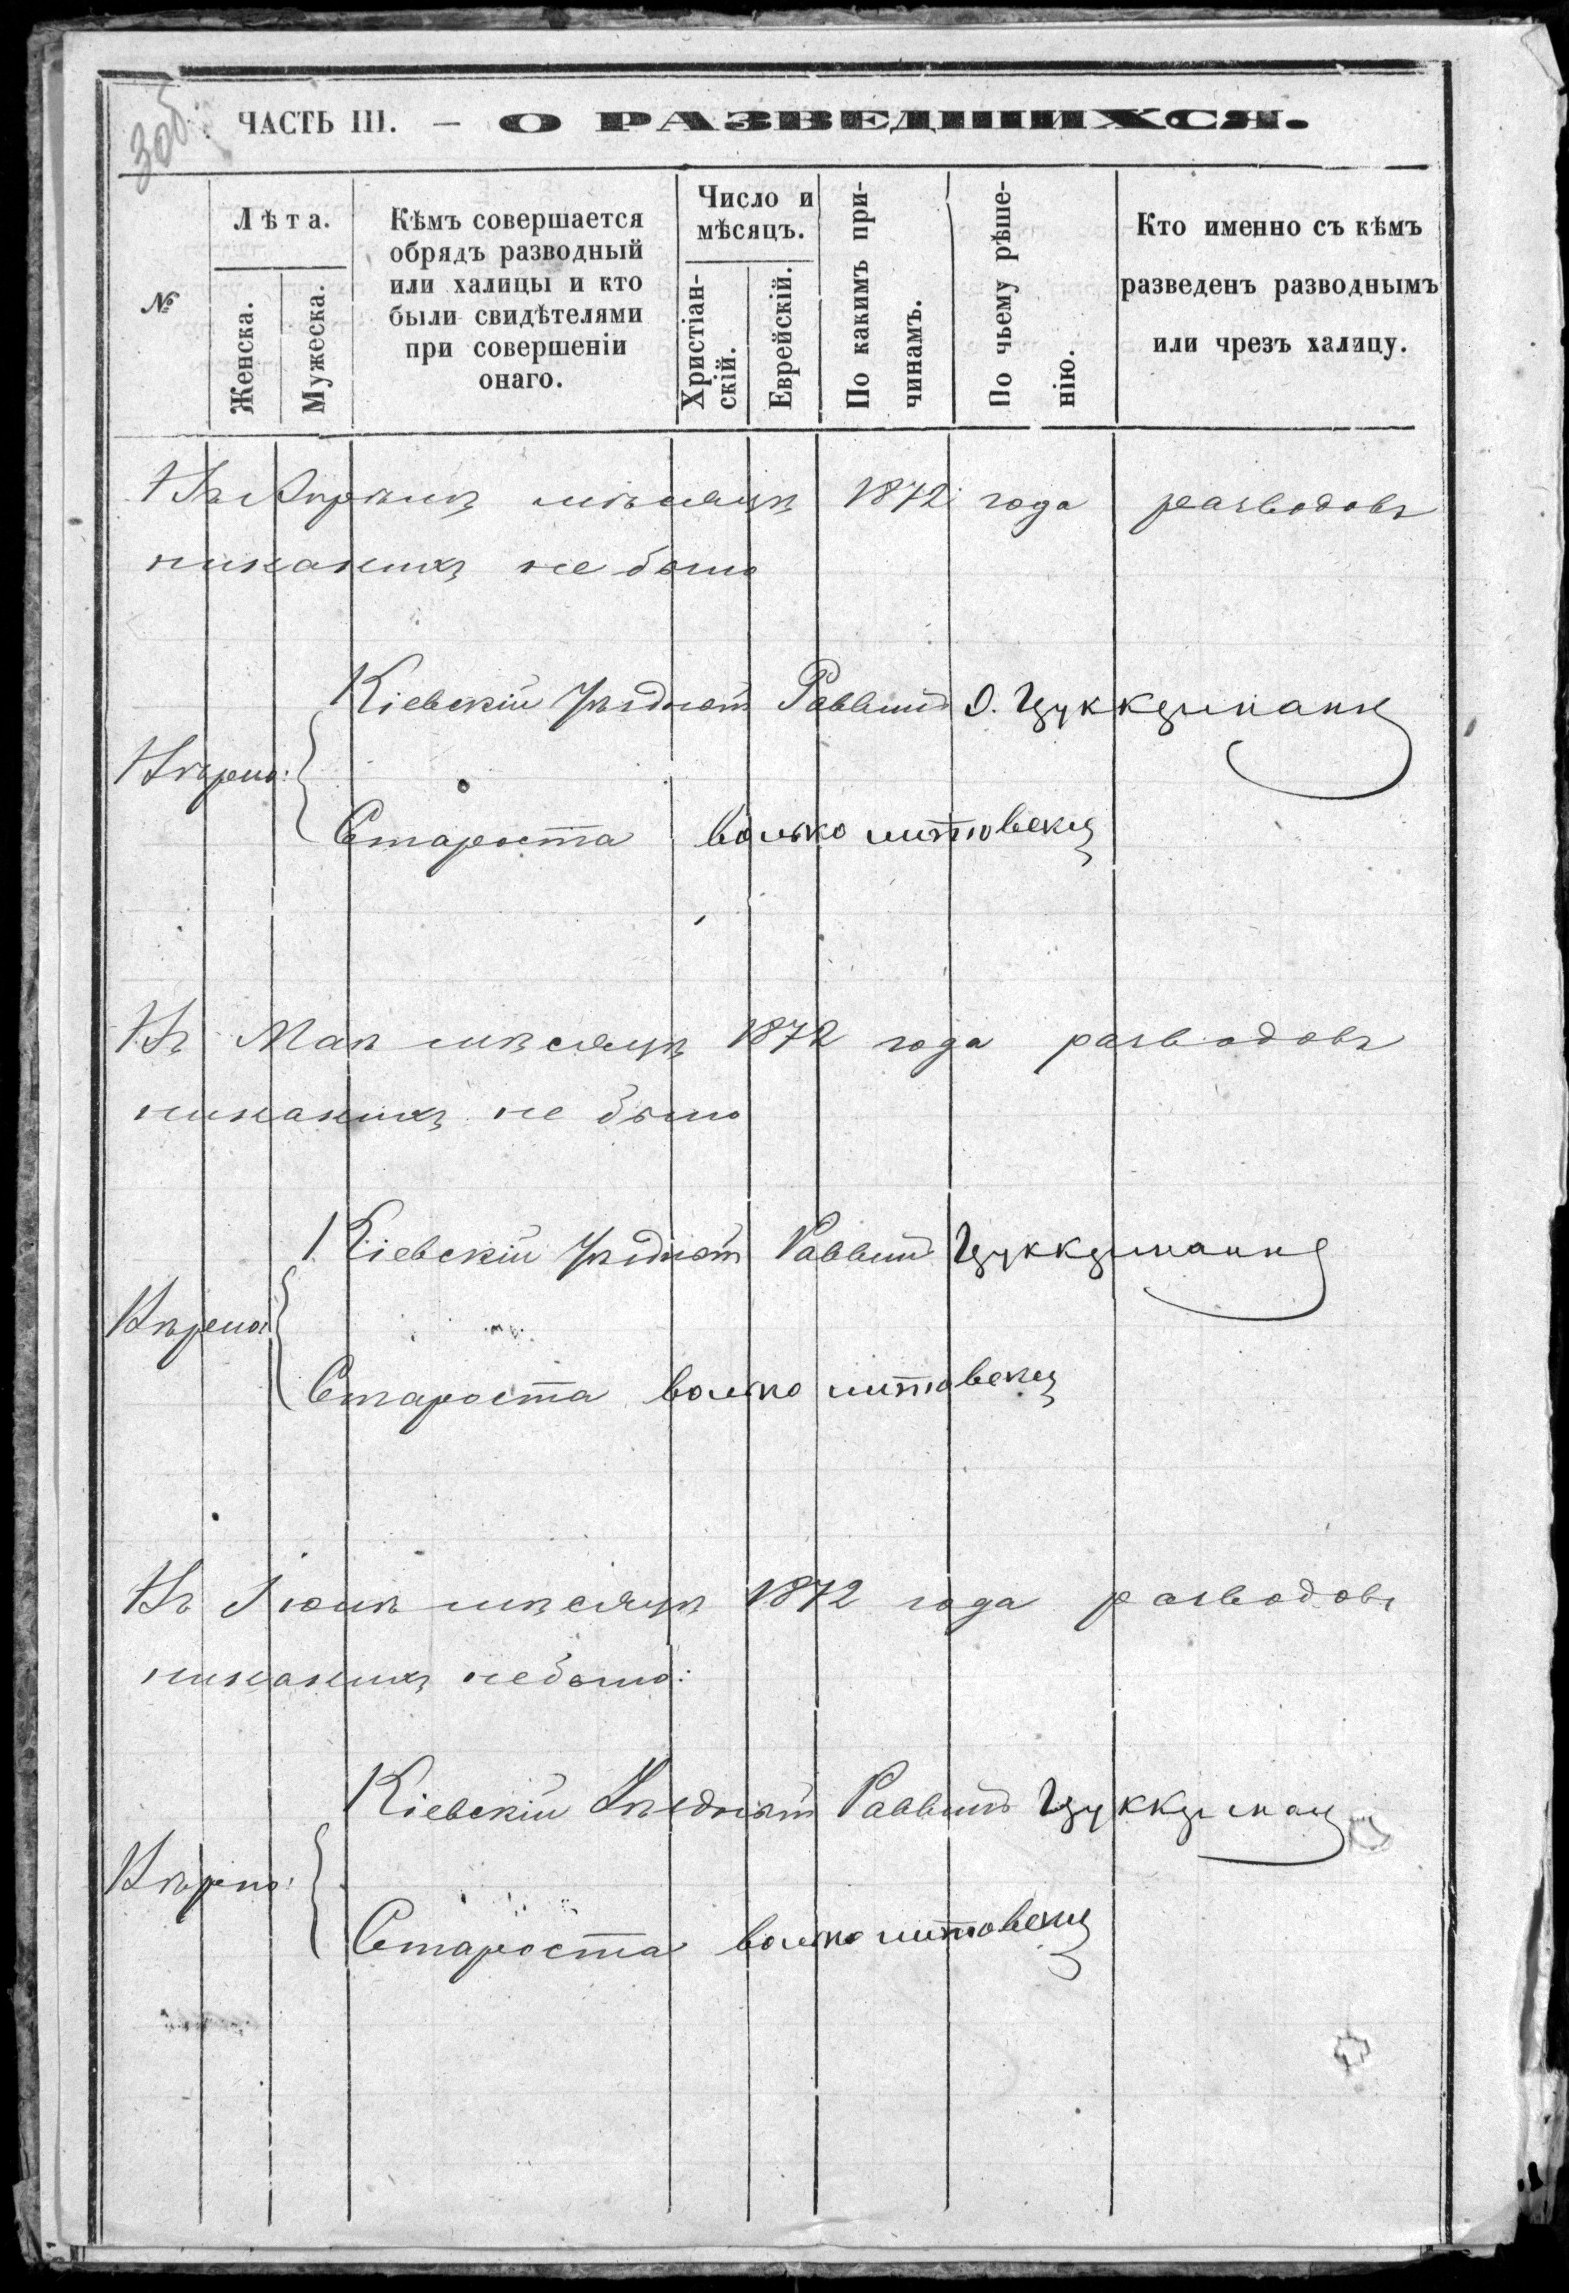 30об.
ЧАСТЬ III. — О РАЗВЕДШИХСЯ.
№
Лѣта.
Женска.
Мужеска.
Кѣмъ совершается
обрядъ разводный
или халицы и кто
были свидѣтелями
при совершеніи
онаго.
Число и
мѣсяцъ.
Христіан-
скій.
Еврейскій.
По какимъ при-
чинамъ.
По чьему рѣше-
нію.
Кто именно съ кѣмъ
разведенъ разводнымъ
или чрезъ халицу.
Въ Апрѣлѣ мѣсяцѣ 1872 года разводовъ
никакихъ не было
Кіевскій Уѣздный Раввинъ О. Цуккерманъ
Вѣрно:
Староста волько литовецкъ
Въ Маѣ мѣсяцѣ 1872 года разводовъ
никакихъ не было
Кіевскій Уѣздный Раввинъ Цуккерманъ
Вѣрно:
Староста волько литовецкъ
Въ Іюнѣ мѣсяцѣ 1872 года разводовъ
никакихъ небыло:
Кіевскій Уѣздный Раввинъ Цуккерман
Вѣрно:
Староста волько литовецкъ